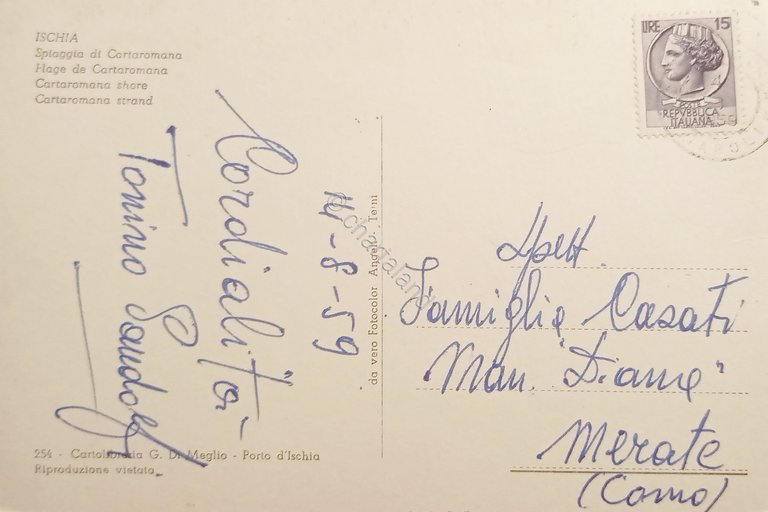 ISCHIA
Spiaggia di Cartaromana
Plage de Cartaromana
Cartaromana shore
Cartaromana strand
LIRE 15
REPVBBLICA
ITALIANA
Cordialità
Tonino
14-8-59
da vero Fotocolor Angeli - Terni
© chartaland
Spett.
Famiglia Casati
Man. "Diana"
Merate
(Como)
254 - Cartolibreria G. Di Meglio - Porto d'Ischia
Riproduzione vietata